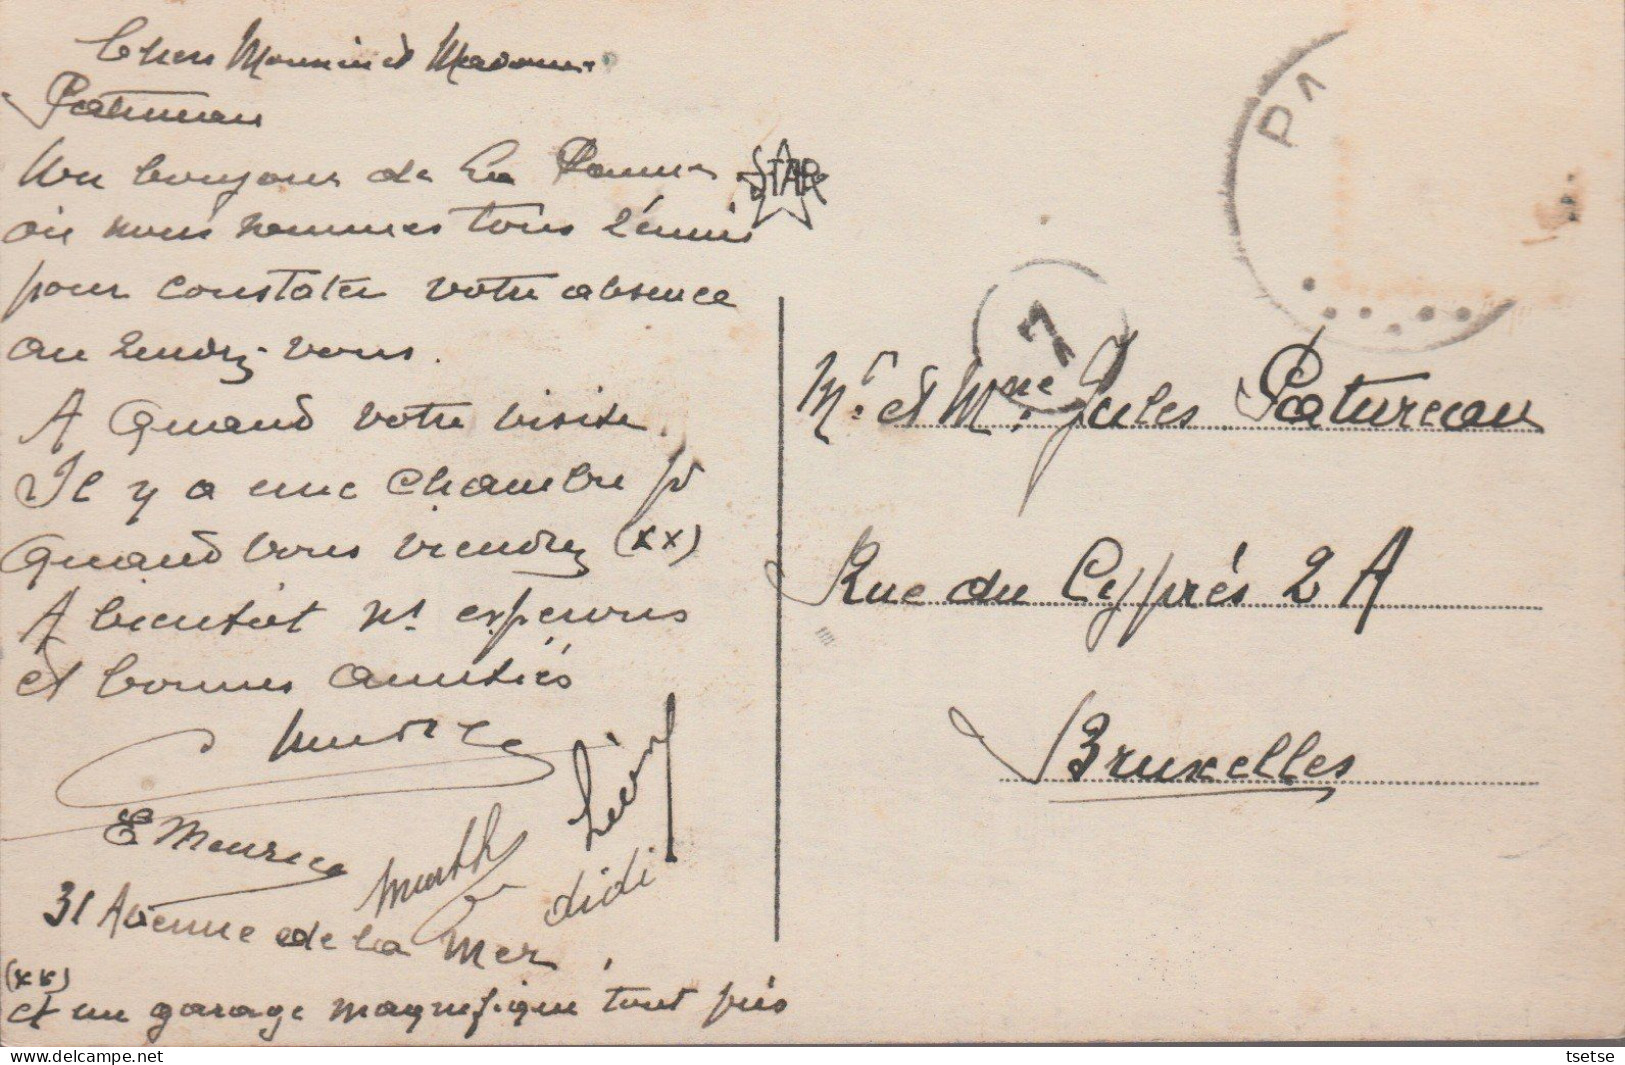 Chers Monsieur et Madame
Patureau
Un bonjour de La Panne
où nous sommes tous réunis
pour constater votre absence
au rendez-vous.
A quand votre visite.
Il y a une chambre pr
quand vous viendrez (xx)
A bientôt ns espérons
et bonnes amitiés
E Meurice
Léon
didi
31 Avenue de la Mer,
(xx)
et un garage magnifique tout près
STAR
PA
7
Mr. et Mme. Jules Patureau
Rue du Cyprés 2 A
Bruxelles
tsetse
www.delcampe.net